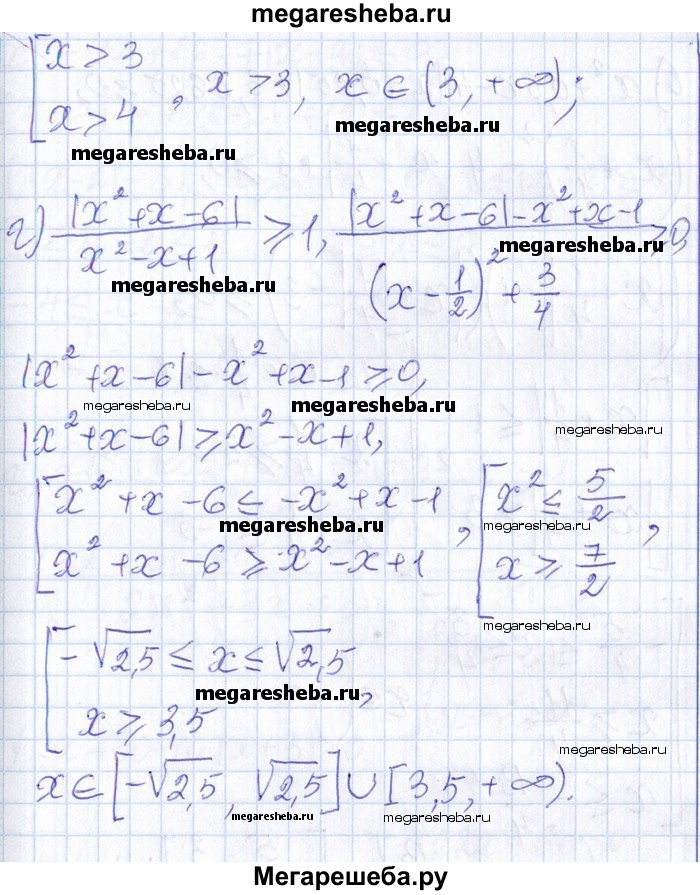 megaresheba.ru
[ x > 3
x > 4 , x > 3, x ∈ (3, +∞);
megaresheba.ru megaresheba.ru
г) |x² + x - 6| / (x² - x + 1) ⩾ 1, (|x² + x - 6| - x² + x - 1) / ((x - 1/2)² + 3/4) ⩾ 0,
megaresheba.ru megaresheba.ru
|x² + x - 6| - x² + x - 1 ⩾ 0,
megaresheba.ru megaresheba.ru
|x² + x - 6| ⩾ x² - x + 1,
megaresheba.ru
[ x² + x - 6 ≤ -x² + x - 1
x² + x - 6 ⩾ x² - x + 1 , [ x² ≤ 5/2
x ⩾ 7/2 ,
megaresheba.ru megaresheba.ru
megaresheba.ru
[ -√2,5 ≤ x ≤ √2,5
x ⩾ 3,5 ,
megaresheba.ru
megaresheba.ru
x ∈ [-√2,5, √2,5] ∪ [3,5, +∞).
megaresheba.ru megaresheba.ru
Мегарешеба.ру